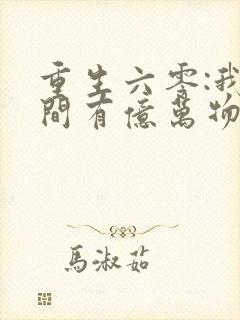 重生六零:我
間有億萬物
馬淑茹